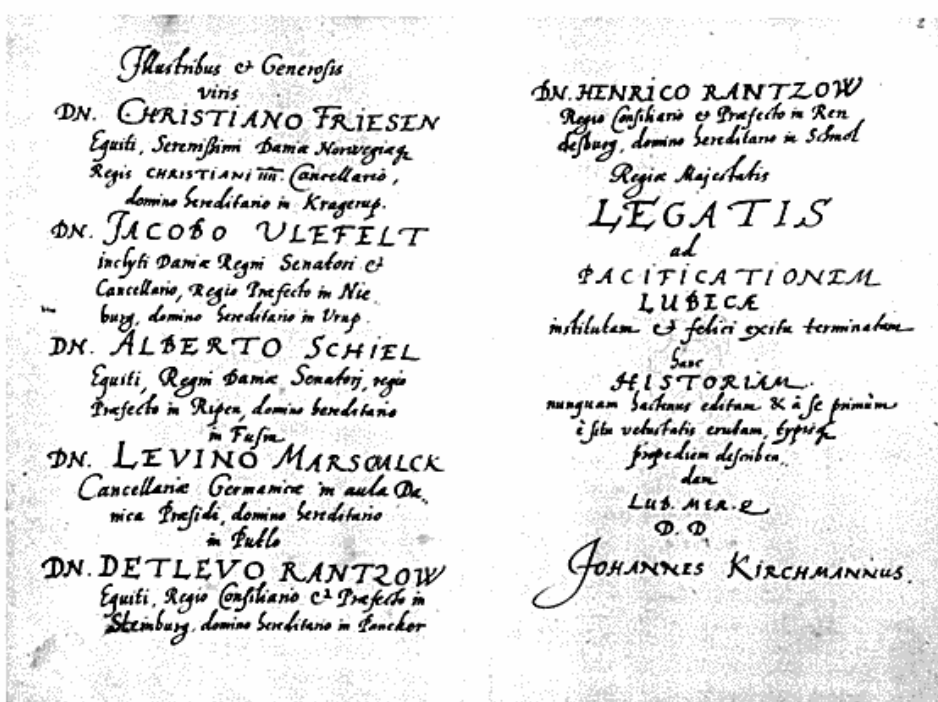 Illustribus & Generosis
viris
DN. CHRISTIANO FRIESEN
Equiti, Serenissimi Daniæ Norwegiæq
Regis CHRISTIANI IIII. Cancellario,
domino hereditario in Kragerup.
DN. JACOBO ULEFELT
inclyti Daniæ Regni Senatori &
Cancellario, Regio Præfecto in Nie
burg, domino hereditario in Urup.
DN. ALBERTO SCHEEL
Equiti, Regni Daniæ Senatorj, regio
Præfecto in Ripen, domino hereditario
in Fusin
DN. LEVINO MARSCALCK
Cancellariæ Germanicæ in aula Da
nica Præsidi, domino hereditario
in
DN. DETLEVO RANTZOW
Equiti, Regio Consiliario & Præfecto in
Stemburg, domino hereditario in Pancker
2
DN. HENRICO RANTZOW
Regio Consiliario & Præfecto in Ren
desburg, domino hereditario in Schmol
Regiæ Majestatis
LEGATIS
ad
PACIFICATIONEM
LUBECÆ
institutam & felici exitu terminatam
hanc
HISTORIAM
nunquam hactenus editam & à se primùm
è situ vetustatis erutam, typisq
propediem describen
dam
LUB. MER. Q
D. D
JOHANNES KIRCHMANNUS.